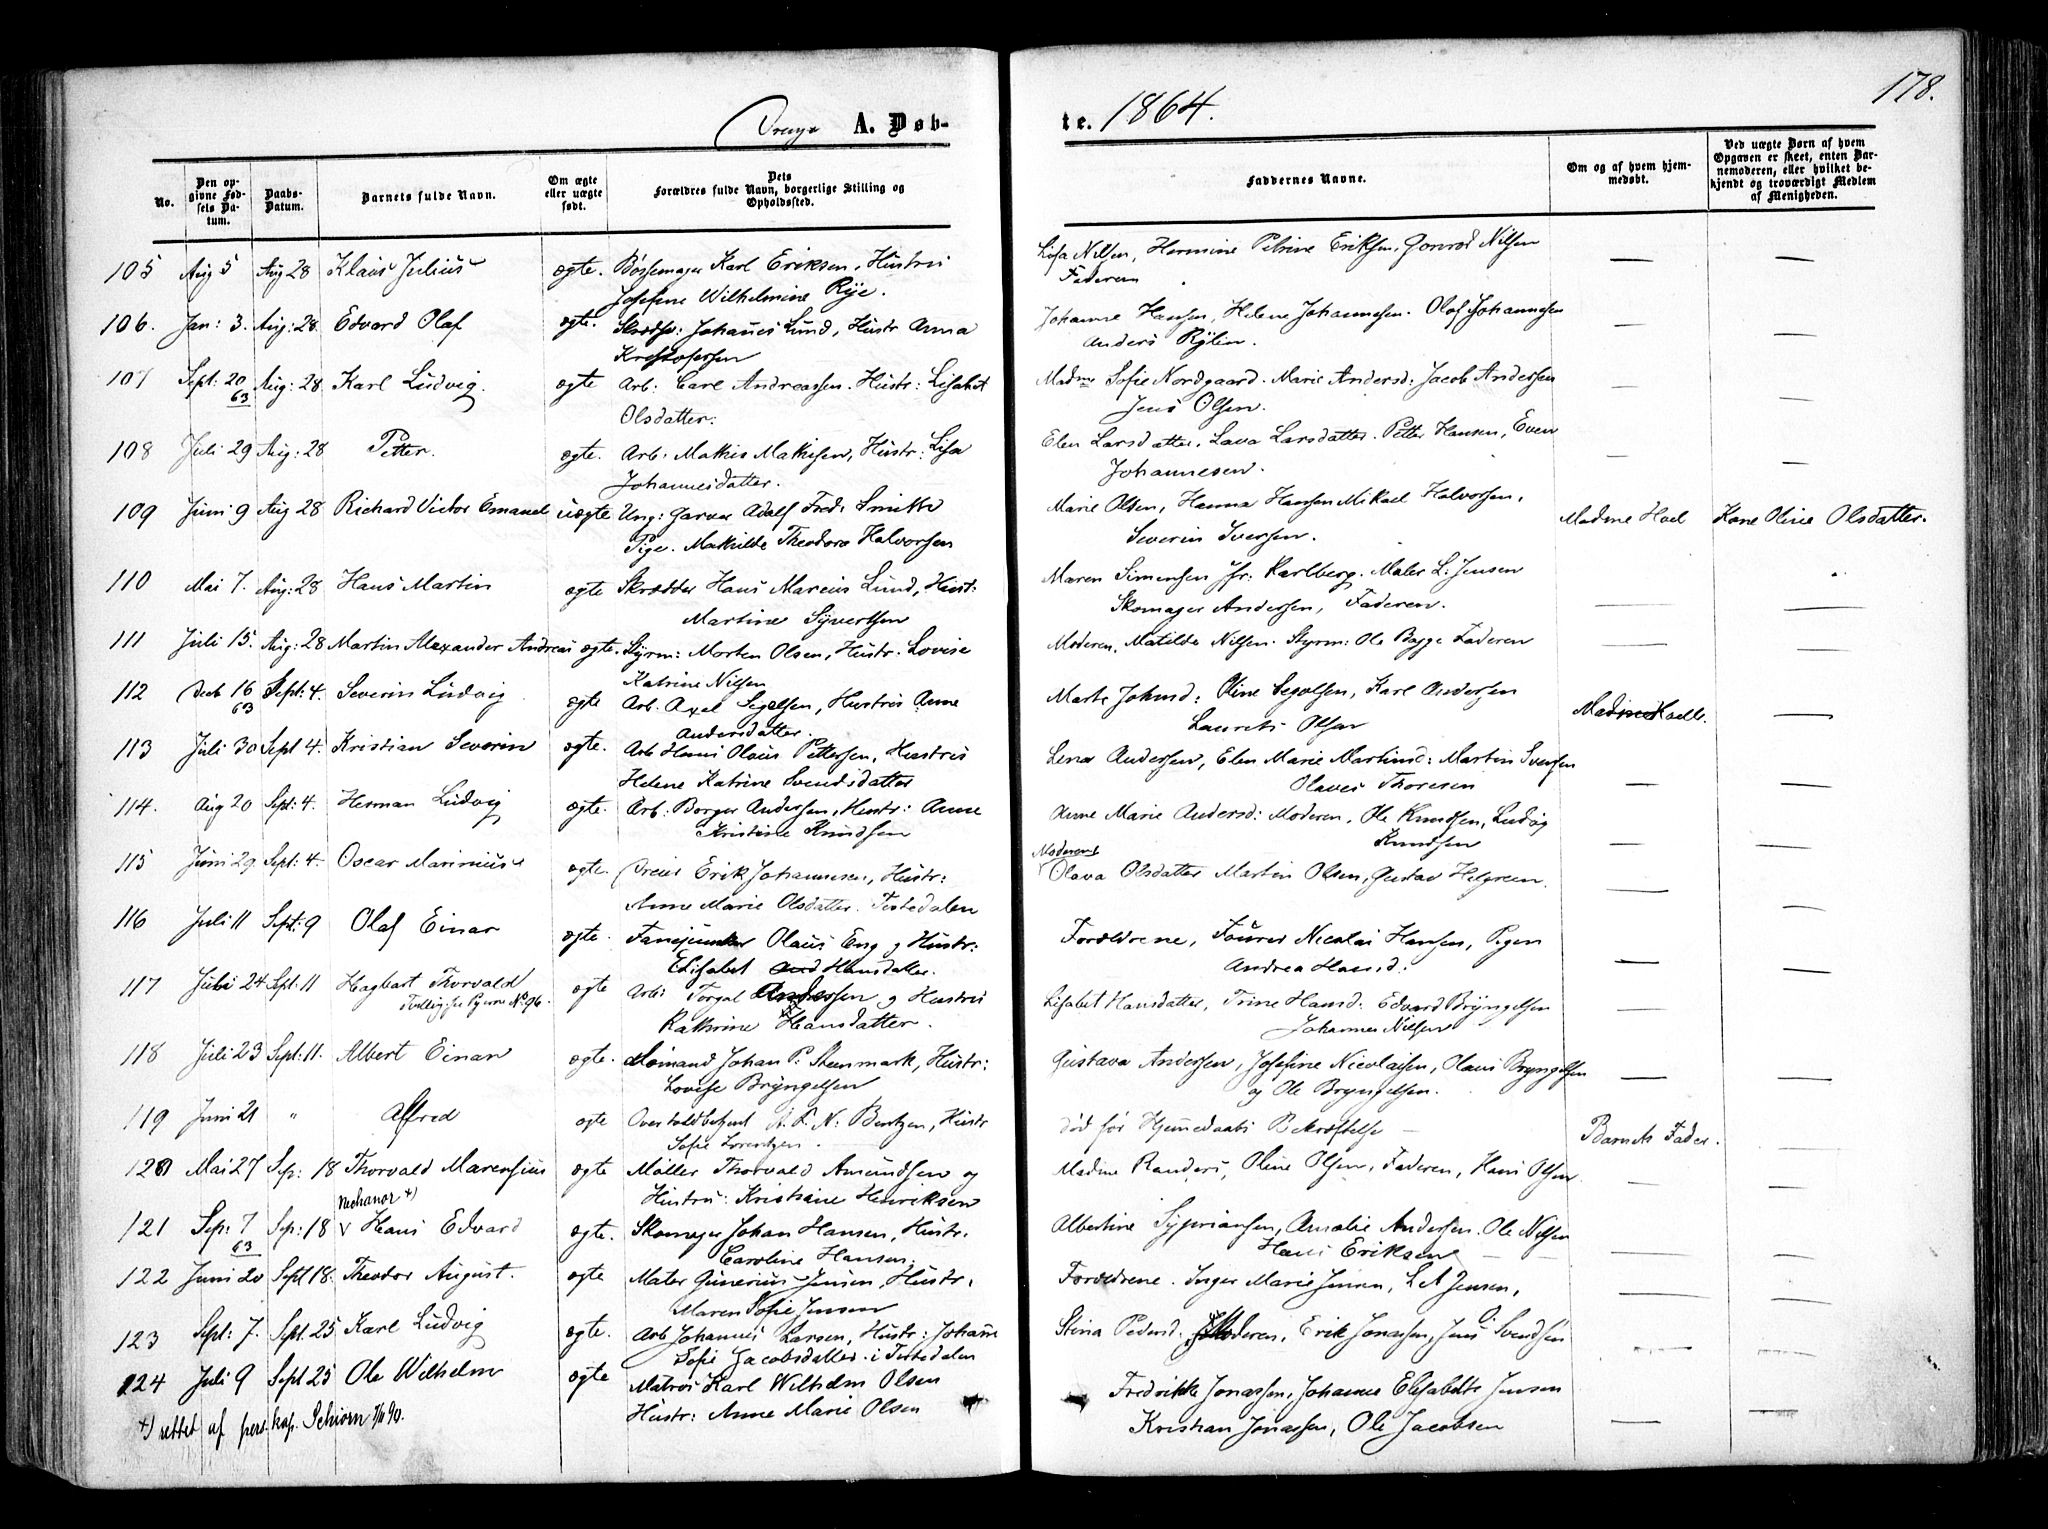 178.
Drenge A. Døb-
te. 1864.
No.
Den op-
givne Fød-
sels Da-
tum.
Daabs-
Datum.
Barnets fulde Navn.
Om ægte
eller uægte
født.
Dets
Forældres fulde Navn, borgerlige Stilling og
Opholdssted.
Faddernes Navne.
Om og af hvem hjem-
medøbt.
Ved uægte Børn af hvem
Opgaven er skeet, enten Bar-
nemoderen, eller hvilket be-
kjendt og troværdigt Medlem
af Menigheden.
105 Aug 5 Aug 28 Klaus Julius ægte. Bøssemager Karl Eriksen, Hustru Lisa Nilsen, Hermine Petrine Eriksen, Nilsen — —
Josefine Wilhelmine Rye. Faderen
106. Jan: 3. Aug: 28. Edvard Olaf ægte. Johanes Lund, Hustr Anna Johanne Hansen, Helene Johannesen. Olaf Johannesen — —
Kristofersen Anders Rylin.
107 Sept: 20 Aug: 28 Karl Ludvig. ægte Arb: Carl Andreassen. Hustr: Lisabet Madme Sofie Nordgaard. Marie Andersd: Jacob Andersen — —
63 Olsdatter. Jens Olsen.
108 Juli 29 Aug: 28 Petter. ægte. Arb: Mathis Mathisen, Hustr: Lisa Elen Larsdatter. Lava Larsdatter. Petter Hansen, Even — —
Johannesdatter. Johannesen.
109 Juni 9 Aug 28 Richard Victor Emanuel uægte Ung: Garver Adolf Fred: Smith Marie Olsen, Hanna Hansen Mikael Halvorsen, Madme Hoel Kone Oline Olsdatter.
Pige. Mathilde Theodora Halvorsen Severin Iversen.
110 Mai 7. Aug: 28 Hans Martin ægte Skrædder Hans Marcus Lund, Hust: Maren Simensen Jfr: Karlberg. Maler L: Jensen — —
Martine Syvertsen Skomager Andersen, Faderen.
111 Juli 15. Aug: 28 Martin Alexander Andreas ægte. Styrm: Morten Olsen, Hustr. Lovise Moderen, Matilde Nilsen. Styrm: Ole Bagge Faderen — —
Katrine Nilsen
112 Decb 16 Sept: 4. Severin Ludvig ægte Arb. Axel Segelsen, Hustru Anne Marte Johnsd: Oline Segelsen, Karl Andersen Madme Hoell. —
63 Andersdatter. Laurets Olsen
113 Juli 30 Sept 4. Kristian Severin ægte. Arb Hans Olaus Pettersen, Hustru Lena Andersen, Elen Marie Martinsd: Martin Iversen — —
Helene Katrine Svendsdatter Olaves Thoresen
114. Aug 20 Sept: 4. Herman Ludvig ægte. Arb: Borger Andersen, Hustr: Anne Anne Marie Andersd: Moderen, Ole Knudsen, Ludvig — —
Kristine Knudsen Knudsen
115 Juni 29. Sept: 4. Oscar Marinius ægte. Erik Johannesen, Hustr: Moderen Olava Olsdatter Martin Olsen, Gustav Helgreen. — —
Anne Marie Olsdatter. Tistedalen
116 Juli 11 Sept: 9 Olaf Einar ægte. Fanejunker Olaus Eng og Hustr: Forældrene, Fourer Nicolai Hansen, Pigen — —
Elisabet Hansdatter. Andrea Hansd:
117 Juli 24 Sept: 11 Hagbart Thorvald ægte Arb: Torgal Andersen og Hustru Lisabet Hansdatter, Trine Hansd: Edvard Bryngelsen — —
Tvilling: se Pigerne No 96. Kathrine Hansdatter. Johannes Nilsen
118 Juli 23 Sept: 11. Albert Einar ægte. Lømand Johan P. Steenmark, Hustr: Gustava Andersen, Josefine Nicolaisen, Olaus Bryngelsen — —
Lovise Bryngelsen og Ole Bryngelsen.
119 Juni 21 " Alfred ægte Overtoldbetjent A. P. N: Berntzen, Hustr død før Hjemedaabs Bekræftelse — Barnets Fader. —
Sofie Lorentzen.
120 Mai 27 Sep: 18 Thorvald Marensius ægte Møller Thorvald Amundsen og Madme Randers, Oline Olsen, Faderen, Hans Olsen — —
Nechanor +) Hustru: Kristiane Henriksen
121 Sep: 7 Sep: 18 v Hans Edvard ægte. Skomager Johan Hansen, Hustr. Albertine Sypriansen, Amalie Andersen. Ole Nilsen — —
63 Caroline Hansen. Hans Eriksen
122 Juni 20 Sept 18. Theodor August. ægte Gunerius Jensen, Hustr: Forældrene. Inger Marie Jensen, L A Jensen, — —
Maren Sofie Jensen
123 Sept: 7. Sept. 25 Karl Ludvig ægte. Arb Johannes Larsen, Hustr: Johane Stina Pedersd. Moderen, Erik Jonassen, Jens Svendsen — —
Sofie Jacobsdatter. i Tistedalen
124 Juli 9 Sept 25 Ole Wilhelm ægte Matros Karl Wilhelm Olsen Fredrikke Jonassen, Johanne Elisabeth Jensen
Hustr: Anne Marie Olsen Kristian Jonassen, Ole Jacobsen — —
+) rettet af pers. kap. Schiørn 7/11 90.